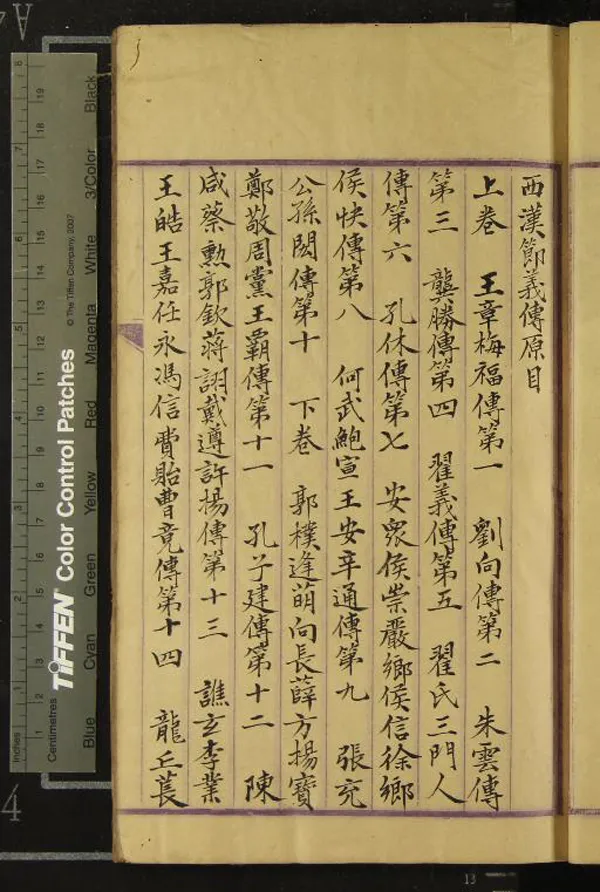 西漢節義傳原目
上卷 王章梅福傳第一 劉向傳第二 朱雲傳
第三 龔勝傳第四 翟義傳第五 翟氏三門人
傳第六 孔休傳第七 安眾侯崇嚴鄉侯信徐鄉
侯快傳第八 何武鮑宣王安辛通傳第九 張充
公孫閎傳第十 下卷 郭樸逢萌向長薛方楊寶
鄭敬周黨王霸傳第十一 孔子建傳第十二 陳
咸蔡勲郭欽蔣詡戴遵許楊傳第十三 譙玄李業
王皓王嘉任永馮信費貽曹竟傳第十四 龍丘萇
Inches
Centimetres
TIFFEN Color Control Patches
© The Tiffen Company, 2007
Blue Cyan Green Yellow Red Magenta White 3/Color Black
1 2 3 4 5 6 7 8
1 2 3 4 5 6 7 8 9 10 11 12 13 14 15 16 17 18 19
A
4
13